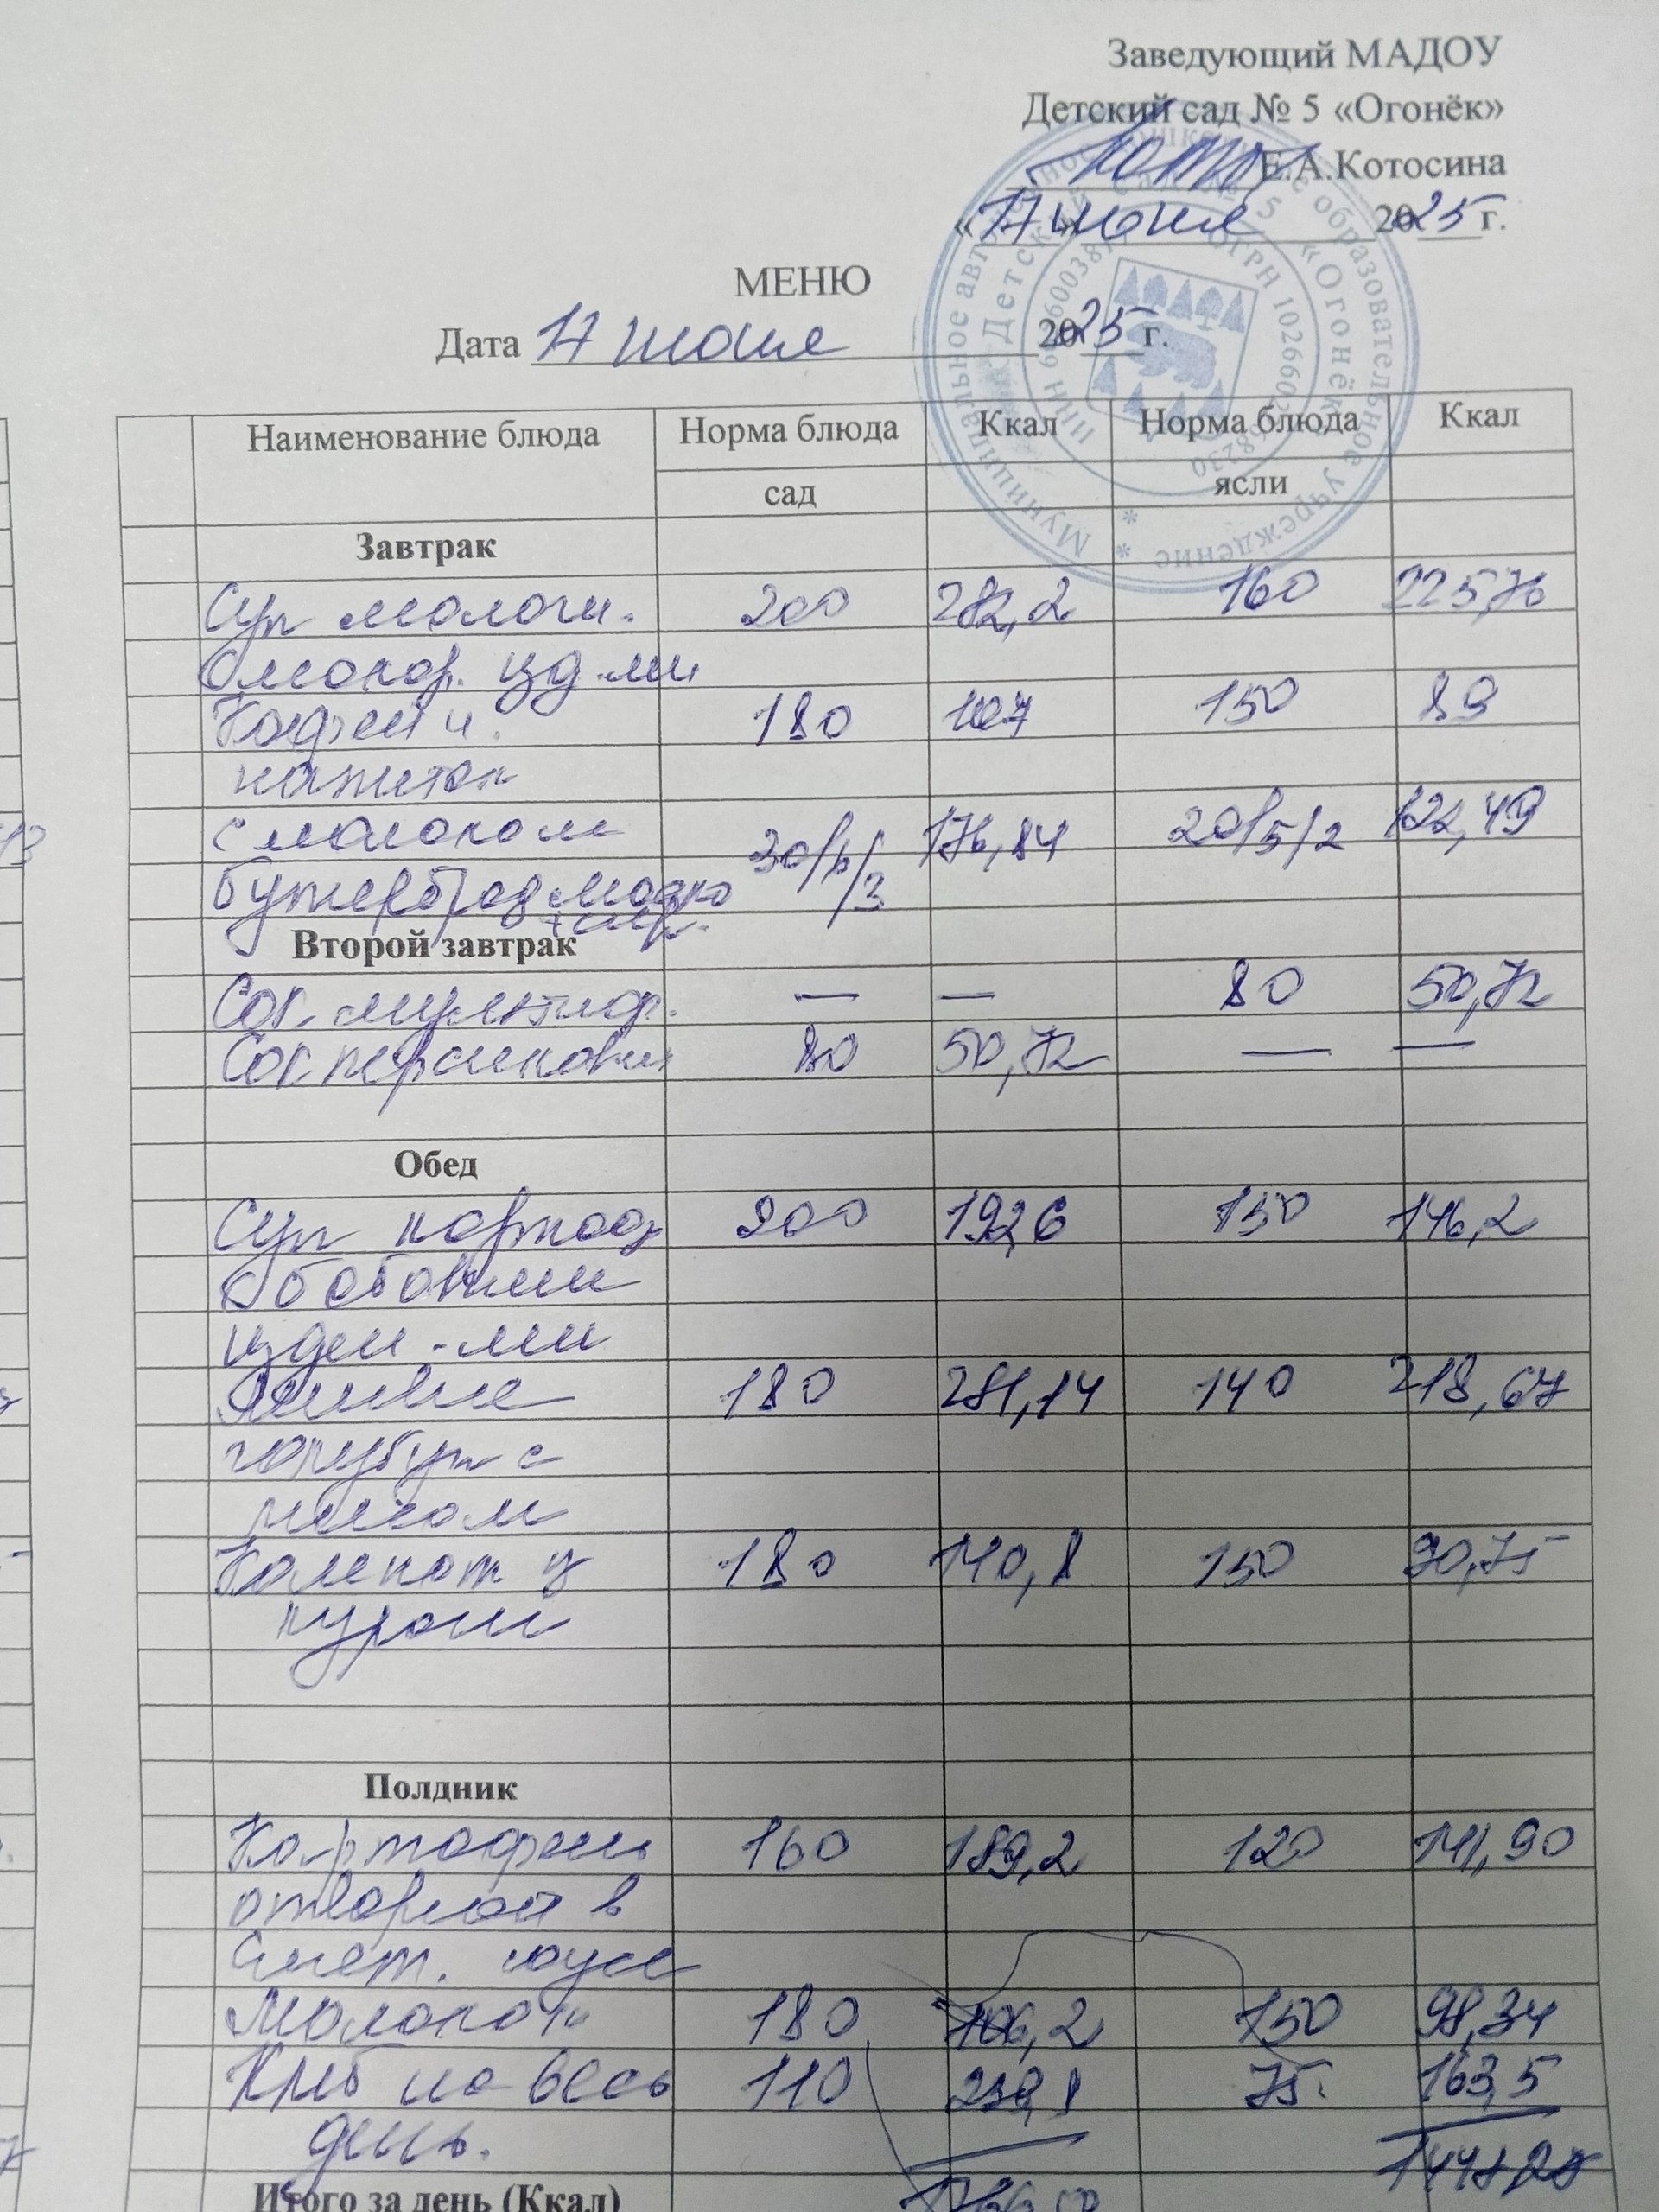 Заведующий МАДОУ
Детский сад № 5 «Огонёк»
Е.А.Котосина
«17» июня 2025 г.
МЕНЮ
Дата 17 июня 2025 г.
Наименование блюда Норма блюда Ккал Норма блюда Ккал
сад ясли
Завтрак
Суп молочн. 200 282,2 160 225,76
с макор. изд-ми
Кофейн. 180 107 150 89
напиток
с молоком 30/6/3 176,84 20/5/2 122,49
бутерброд масло
+ сыр.
Второй завтрак
Сок мультифр. — — 80 50,72
Сок персиковый 80 50,72 — —
Обед
Суп картоф 200 192,6 150 146,2
с бобовыми
издел-ми
Ленивые 180 281,14 140 218,67
голубцы с
мясом
Компот из 180 110,8 150 90,75
кураги
Полдник
Картофель 160 189,2 120 141,90
отварной в
смет. соусе
Молоко 180 106,2 150 98,34
Хлеб на весь 110 239,8 75 163,5
день.
Итого за день (Ккал)
Муниципальное автономное дошкольное образовательное учреждение
Детский сад № 5 «Огонёк»